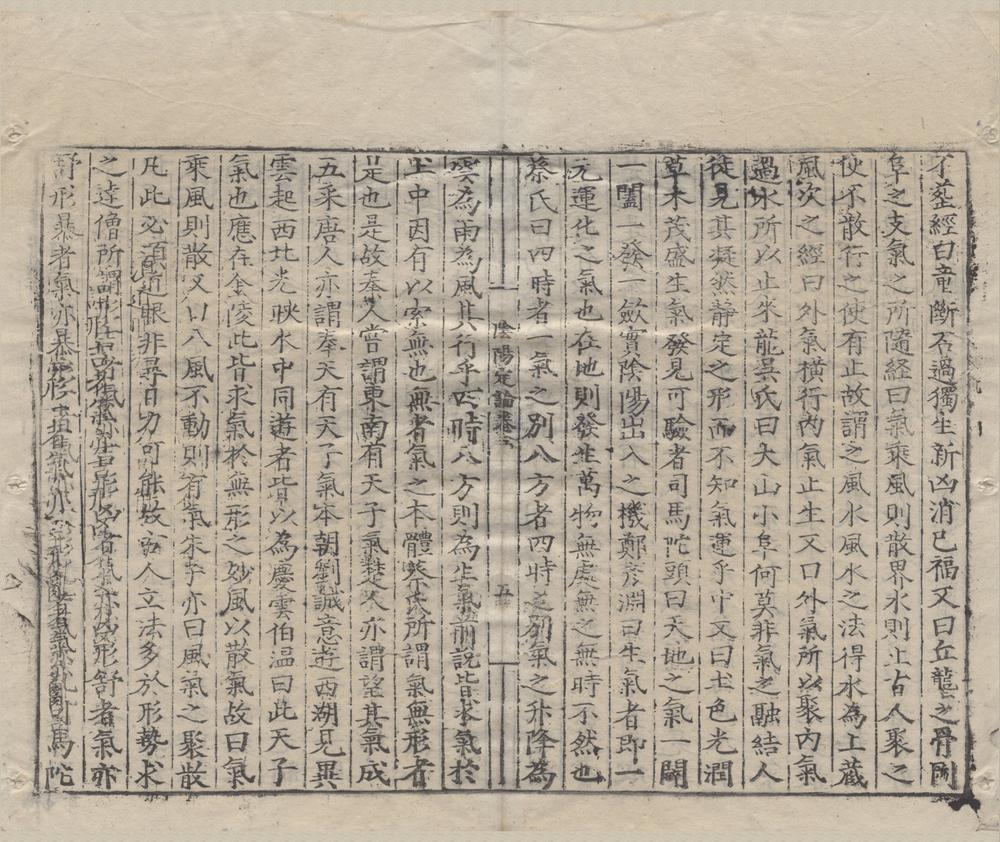 不葬經曰童斷石過獨生新凶消已福又曰丘龍之骨岡
阜之支氣之所隨經曰氣乘風則散界水則止古人聚之
使不散行之使有止故謂之風水風水之法得水為上藏
風次之經曰外氣橫行內氣止生又曰外氣所以聚內氣
過水所以止來龍吳氏曰大山小阜何莫非氣之融結人
徒見其凝然靜定之形而不知氣運乎中又曰土色光潤
草木茂盛生氣發見可驗者司馬陀頭曰天地之氣一闢
一闔一發一斂實陰陽出入之機鄭彥淵曰生氣者即一
元運化之氣也在地則發生萬物無處無之無時不然也
蔡氏曰四時者一氣之別八方者四時之別氣之升降為
陰陽定論卷之 五
雲為雨為風其行乎四時八方則為生氣前說皆求氣於
土中因有以索無也無者氣之本體蔡氏所謂氣無形者
是也是故秦人嘗謂東南有天子氣楚人亦謂望其氣成
五采唐人亦謂奉天有天子氣本朝劉誠意遊西湖見異
雲起西北光映水中同遊者皆以為慶雲伯溫曰此天子
氣也應在金陵此皆求氣於無形之妙風以散氣故曰氣
乘風則散又曰八風不動則有氣朱子亦曰風氣之聚散
凡此必須道眼非尋目力可能故古人立法多於形勢求
之達僧所謂形吉者氣亦吉形凶者氣亦凶形舒者氣亦
舒形暴者氣亦暴形 者氣亦 形 者氣亦 司馬陀